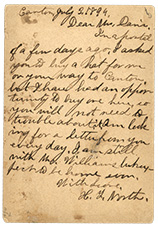 Canton, July 2 1894.
Dear Mrs. Davis,
In a postal
of a few days ago, I asked
you to buy a hat for me
on your way to Canton,
but I have had an oppor
tunity to buy one here, so
you will not need to
trouble about it. Am look
ing for a letter from you
every day. I am still
with Mrs. Williams, but ex-
pect to be home soon.
With love,
H. L. North.